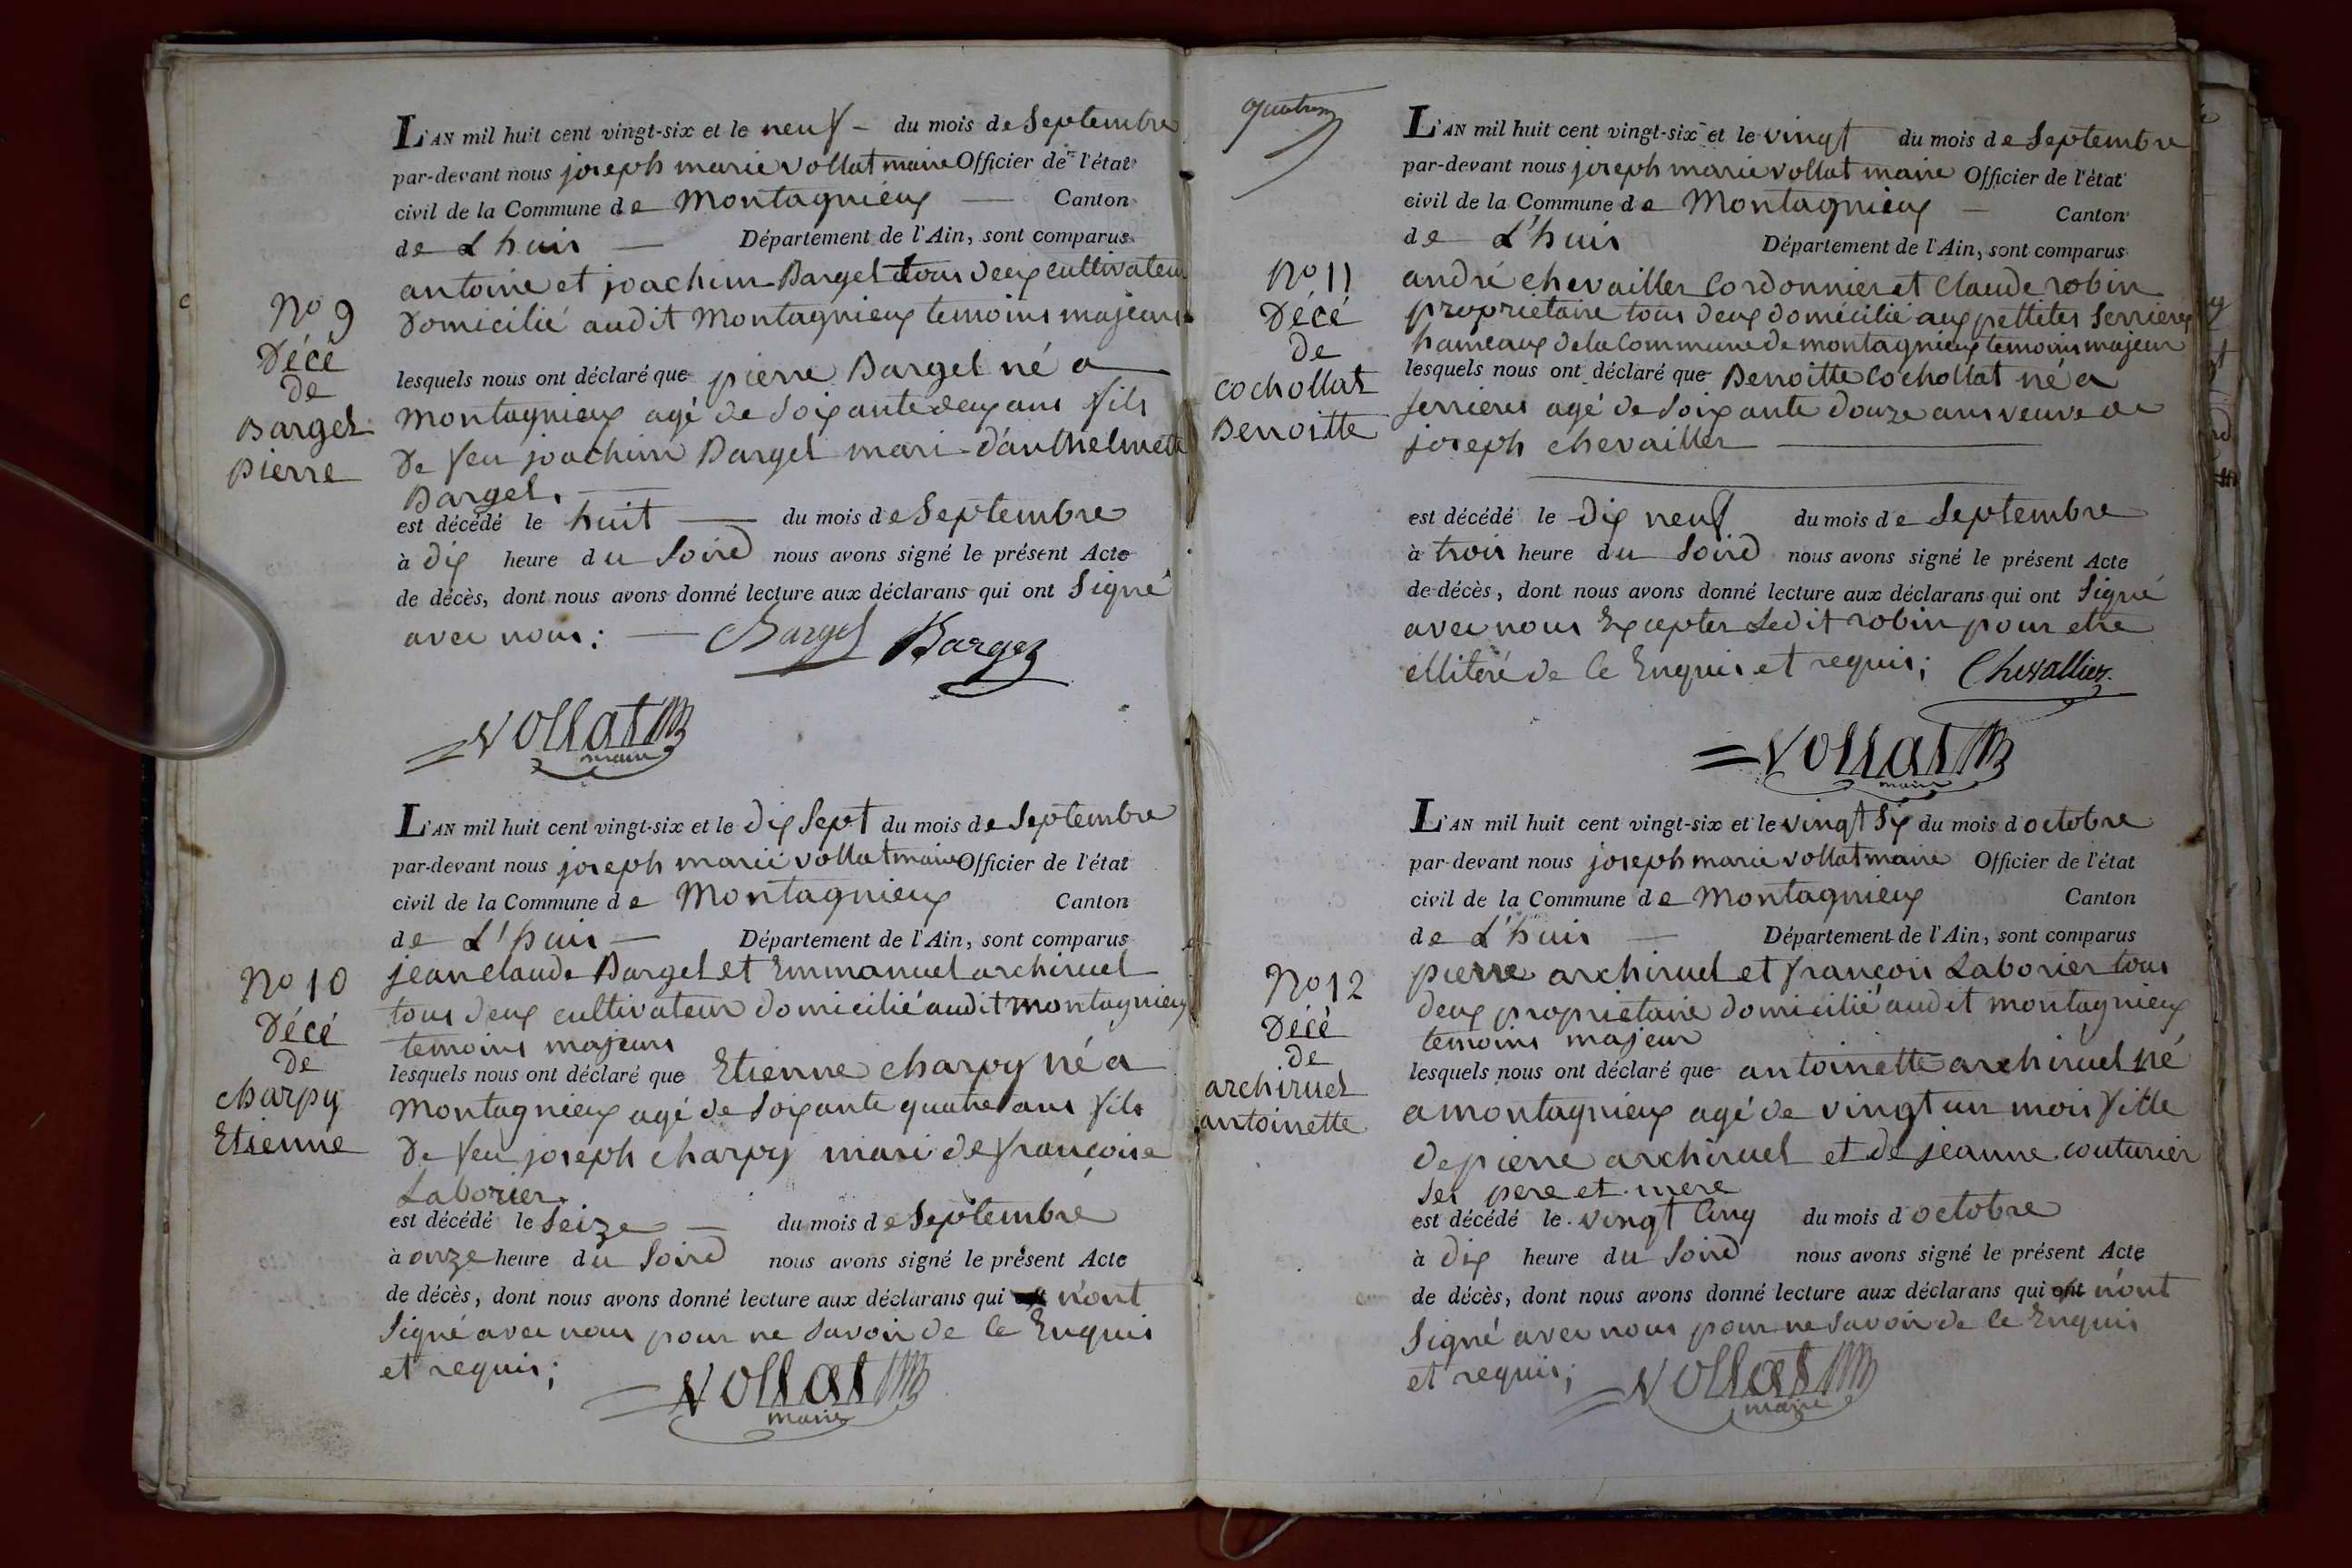 L'AN mil huit cent vingt-six et le neuf - du mois de Septembre
par-devant nous joseph marie vollat maire Officier de l'état
civil de la Commune de Montagnieux — Canton
de Lhuis — Département de l'Ain, sont comparus
antoine et joachim Bargel tous deux cultivateur
Domicilié audit Montagnieux temoins majeurs
No 9
Décé
de
Bargel
pierre
lesquels nous ont déclaré que pierre Bargel né a
Montagnieux agé de Soixante deux ans fils
De feu joachim Bargel mari d'anthelmette
Bargel. —
est décédé le huit — du mois de Septembre
à dix heure du Soird nous avons signé le présent Acte
de décès, dont nous avons donné lecture aux déclarans qui ont Signé
avec nous: — Bargel Bargel
vollat
maire
L'AN mil huit cent vingt-six et le dix Sept du mois de Septembre
par-devant nous joseph marie vollat maire Officier de l'état
civil de la Commune de Montagnieux Canton
de L'huis — Département de l'Ain, sont comparus
No 10
Décé
de
charpy
Etienne
jean claude Bargel et Emmanuel archiruel
tous deux cultivateur domicilié audit montagnieux
temoins majeurs
lesquels nous ont déclaré que Etienne charpy né a
Montagnieux agé de Soixante quatre ans fils
De feu joseph charpy mari de françoise
Laborier.
est décédé le Seize — du mois de Septembre
à onze heure du Soird nous avons signé le présent Acte
de décès, dont nous avons donné lecture aux déclarans qui n'ont
Signé avec nous pour ne Savoir de Ce Enquis
et requis;
vollat
maire
L'AN mil huit cent vingt-six et le vingt du mois de Septembre
par-devant nous joseph marie vollat maire Officier de l'état
civil de la Commune de Montagnieux — Canton
de L'huis Département de l'Ain, sont comparus
No 11
Décé
de
cochollat
Benoitte
andré chevailler Cordonnier et Claude robin
proprietaire tous deux domécilié aux pettites Serrieres
hameaux de la Commune de montagnieux temoins majeur
lesquels nous ont déclaré que Benoitte Cochollat né a
Serrieres agé de Soixante douze ans veuve de
joseph chevailler —
est décédé le dix neuf du mois de Septembre
à trois heure du Soird nous avons signé le présent Acte
de décès, dont nous avons donné lecture aux déclarans qui ont Signé
avec nous Excepter Ledit robin pour etre
illitéré de Ce Enquis et requis; Chevallier
vollat
maire
L'AN mil huit cent vingt-six et le vingt Six du mois d octobre
par-devant nous joseph marie vollat maire Officier de l'état
civil de la Commune de Montagnieux Canton
de L'huis — Département de l'Ain, sont comparus
No 12
Décé
de
archiruel
antoinette
pierre archiruel et françois Laborier tous
deux proprietaire domicilié audit montagnieux
temoins majeur
lesquels nous ont déclaré que antoinette archiruel né
a montagnieux agé de vingt un mois fille
de pierre archiruel et de jeanne couturier
Ses pere et mere
est décédé le vingt Cinq du mois d octobre
à dix heure du Soird nous avons signé le présent Acte
de décès, dont nous avons donné lecture aux déclarans qui ont n'ont
Signé avec nous pour ne Savoir de Ce Enquis
et requis;
vollat
maire